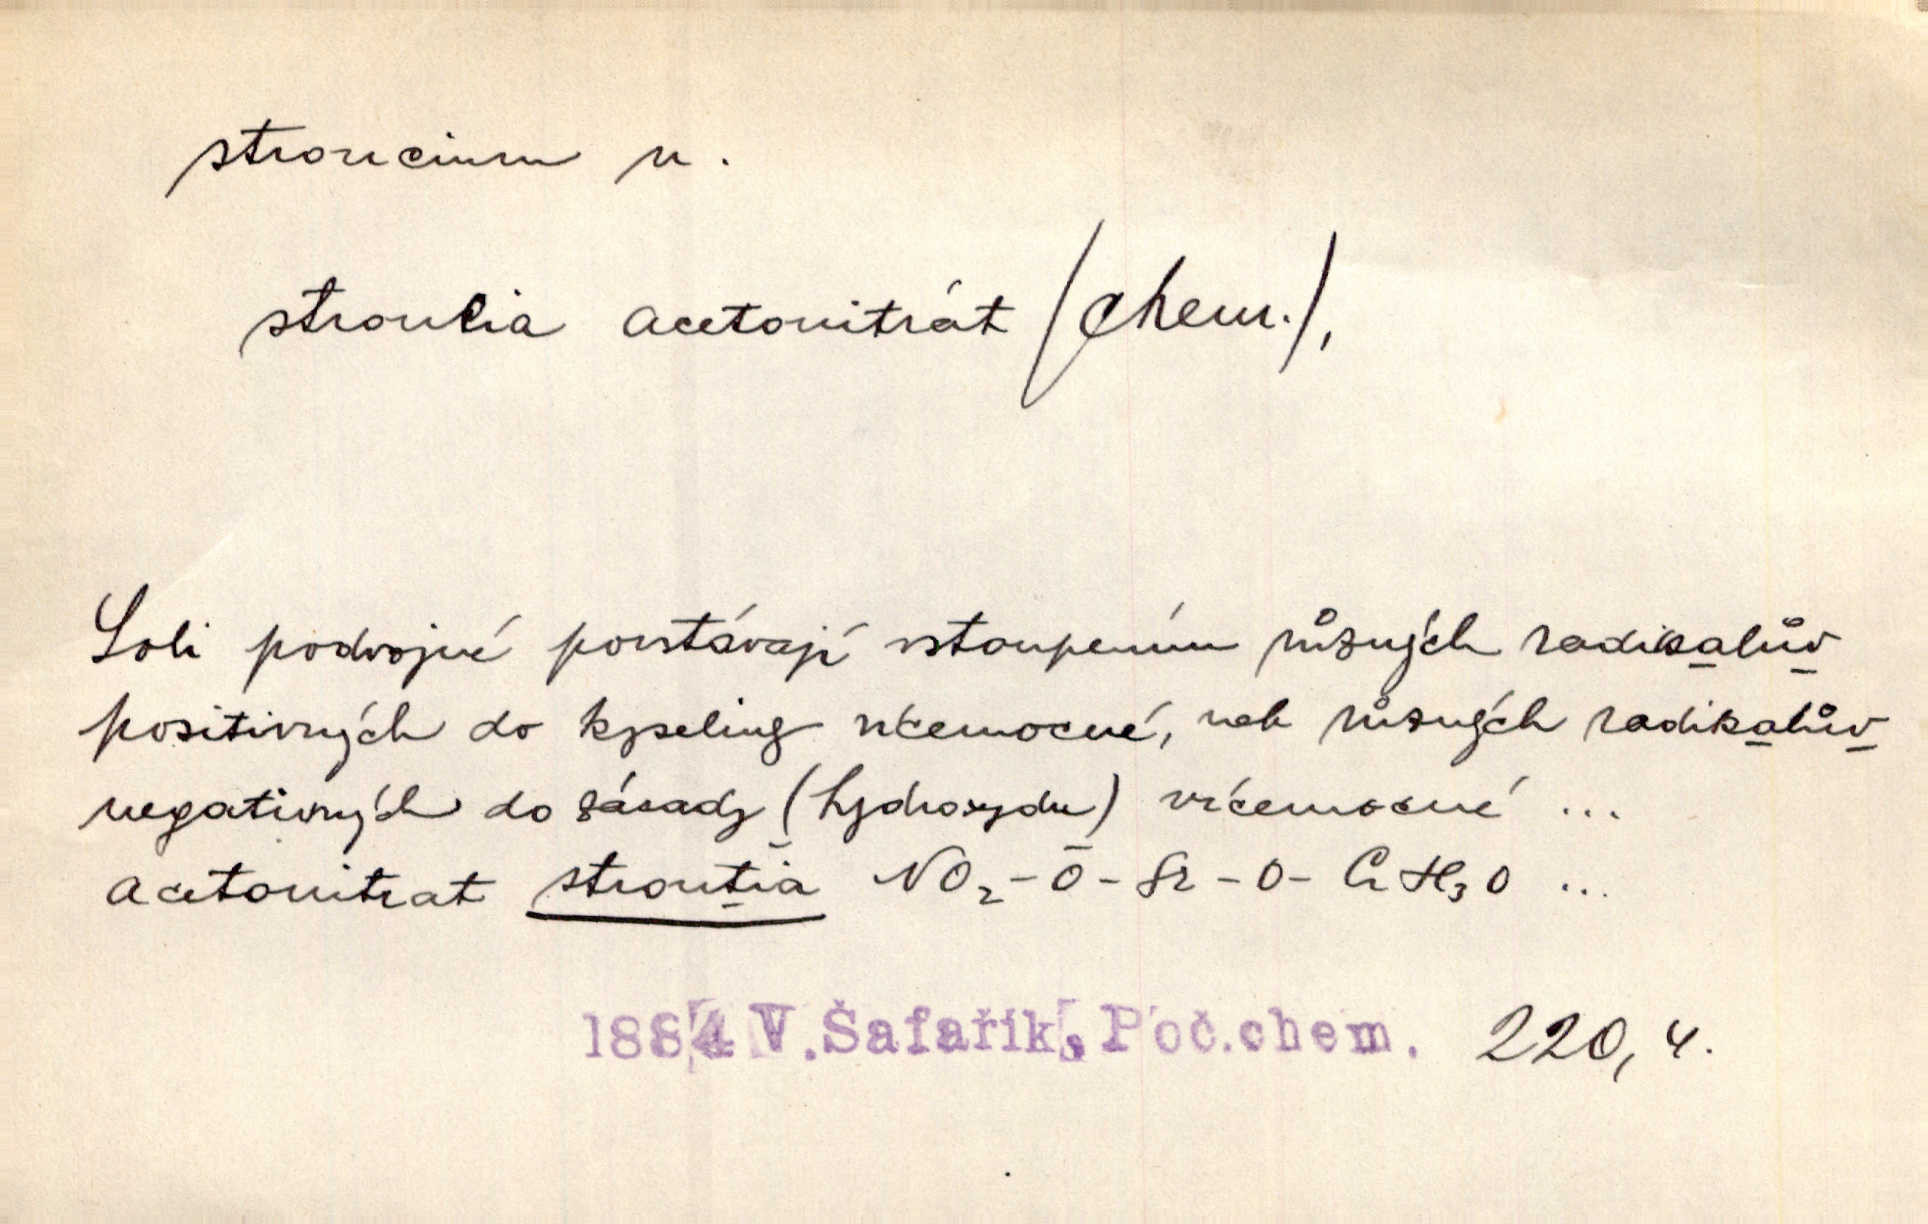 stroncium n.
stroncia acetonitrát (chem.),
Soli podvojné povstávají vstoupením různých radikalův
positivných do kyseliny vícemocné, neb různých radikalův
negativných do zásady (hydroxydu) vícemocné ...
acetonitrat strontia NO₂-O-Sr-O-C₂H₃O ...
1884 V. Šafařík, Poč.chem. 220, 4.